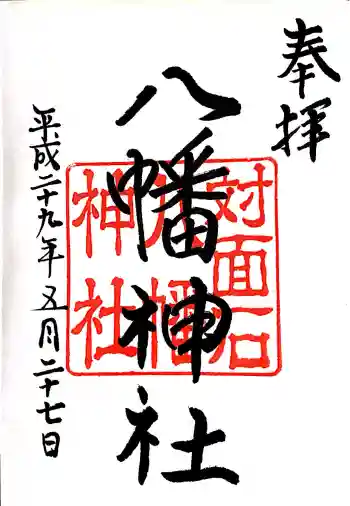 奉拝
八幡神社
対面石
八幡
神社
平成二十九年五月二十七日